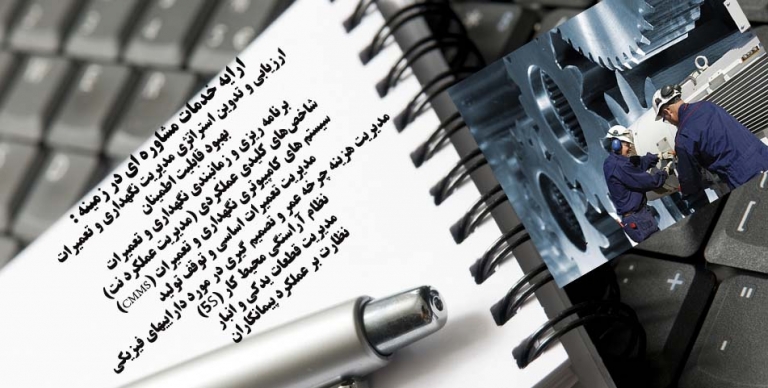 ارایه خدمات مشاوره ای در زمینه :
ارزیابی و تدوین استراتژی مدیریت نگهداری و تعمیرات
بهبود قابلیت اطمینان
برنامه ریزی و زمانبندی نگهداری و تعمیرات
شاخص‌های کلیدی عملکردی (مدیریت عملکرد نت)
سیستم های کامپیوتری نگهداری و تعمیرات (CMMS)
مدیریت تعمیرات اساسی و توقف تولید
مدیریت هزینه چرخه عمر و تصمیم گیری در مورد داراییهای فیزیکی
نظام آراستگی محیط کار (5S)
مدیریت قطعات یدکی و انبار
نظارت بر عملکرد پیمانکاران